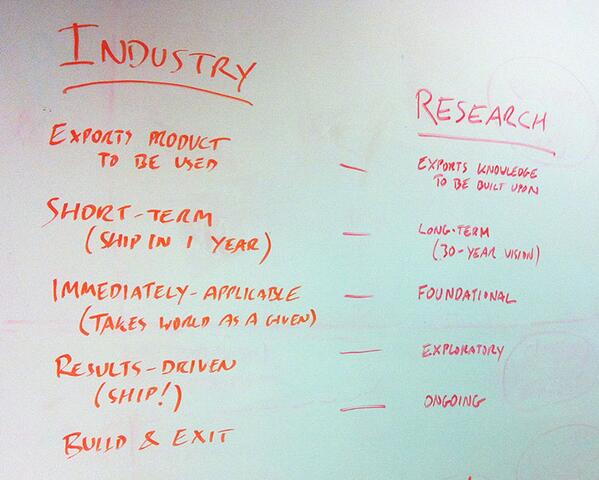 INDUSTRY
EXPORTS PRODUCT
TO BE USED
SHORT-TERM
(SHIP IN 1 YEAR)
IMMEDIATELY-APPLICABLE
(TAKES WORLD AS A GIVEN)
RESULTS-DRIVEN
(SHIP!)
BUILD & EXIT
RESEARCH
— EXPORTS KNOWLEDGE
TO BE BUILT UPON
— LONG-TERM
(30-YEAR VISION)
— FOUNDATIONAL
— EXPLORATORY
— ONGOING